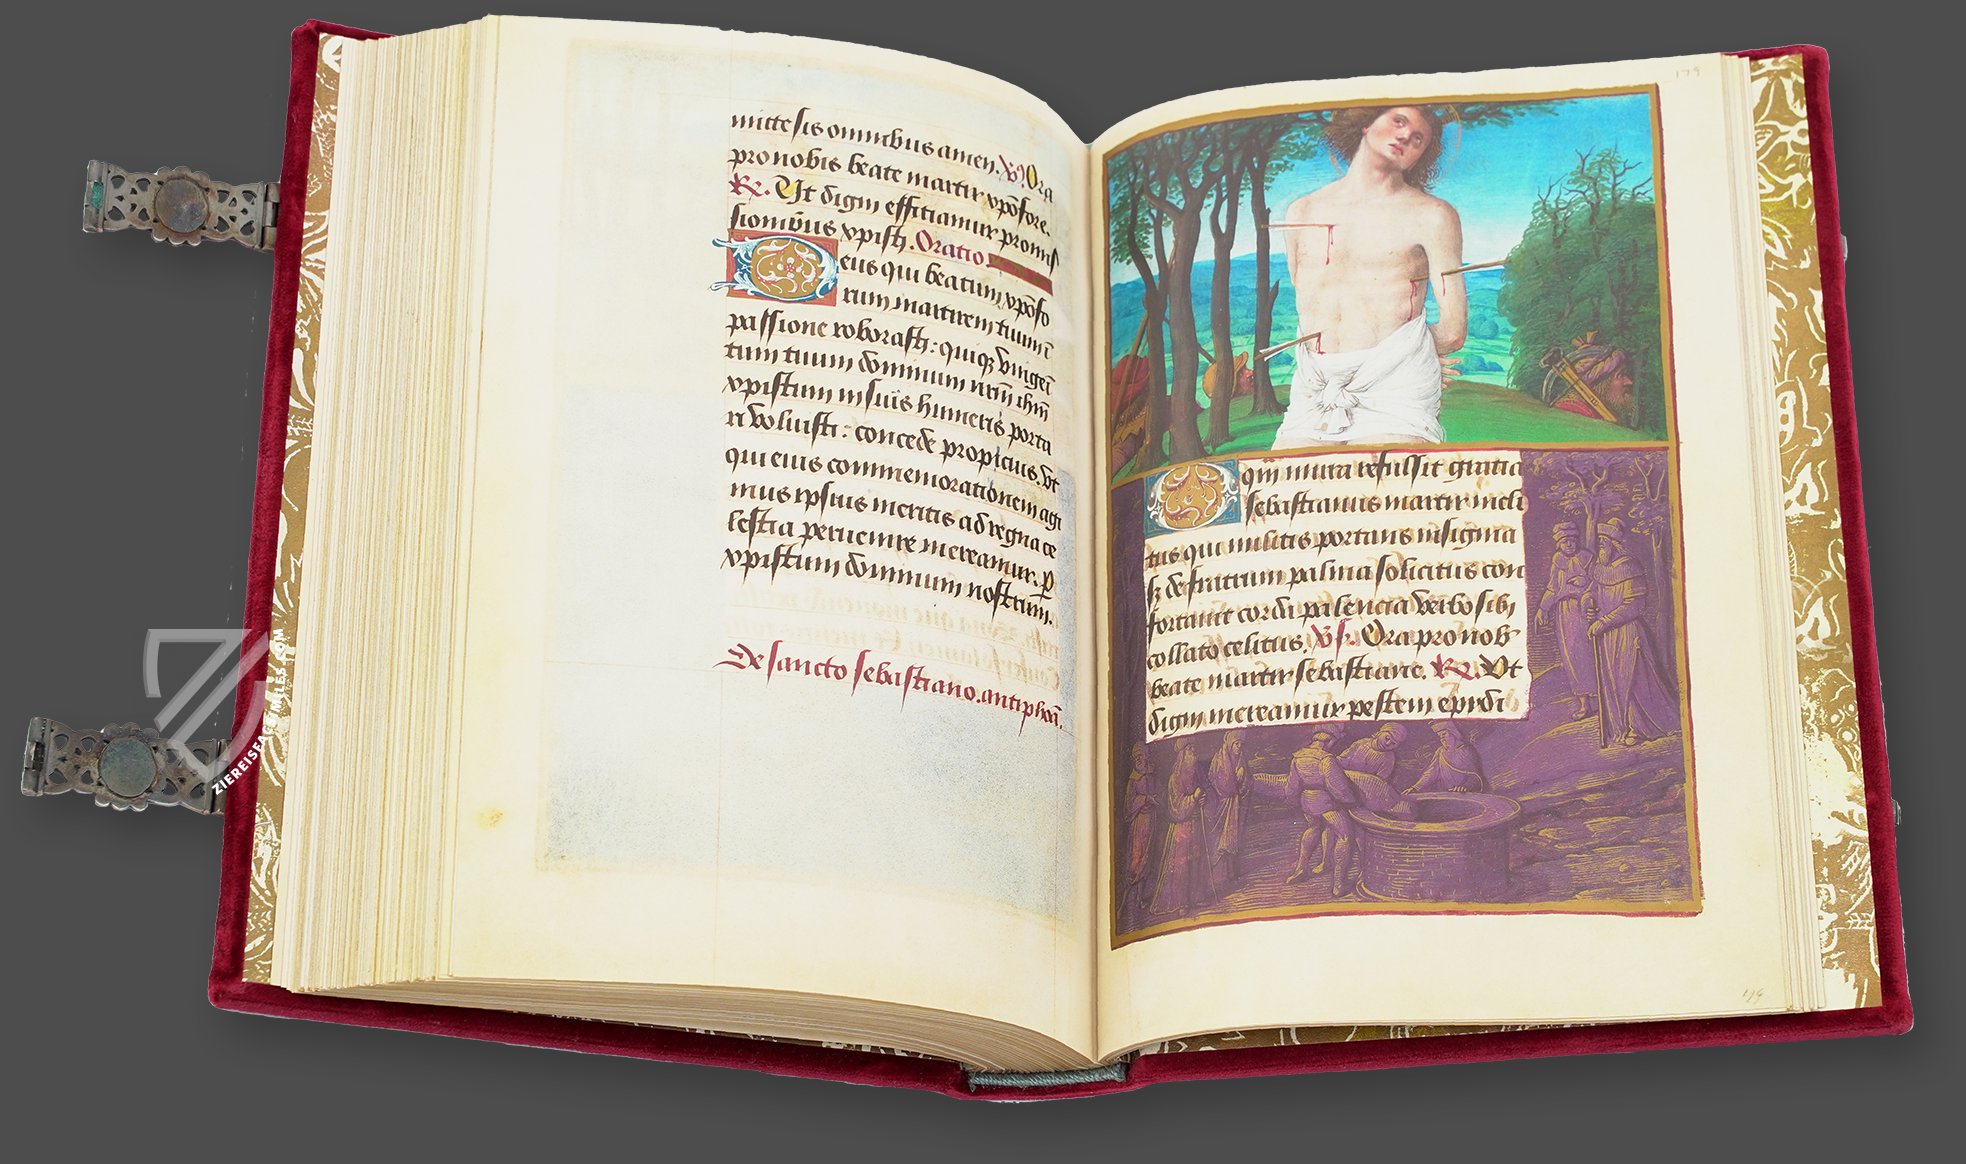 mittesis omnibus amen. V. Ora
pro nobis beate martir xpofore.
R. Ut digni efficiamur promis
sionibus xpisti. Oratio
Deus qui beatum xpofo
rum martirem tuum ī
passione roborasti: quiqꝫ unigeī
tum tuum dominum nrm ihm
xpistum in suis humeris porta
ri voluisti: concede propicius. ut
qui eius commemorationem agi
mus ipsius meritis ad regna ce
lestia peruenire mereamur. p
xpistum dominum nostrum.
De sancto sebastiano. antiphoā.
179
O qm mira refulsit gratia
sebastianus martir incli
tus qui militis portans insignia
sꝫ de fratrum palma solicitus con
fortauit corda palencia verbo sibi
collato celitus. Vs. Ora pro nob
beate martir sebastiane. R. Ut
digni mereamur pestem epidi
179
ZIEREISFACSIMILES.COM